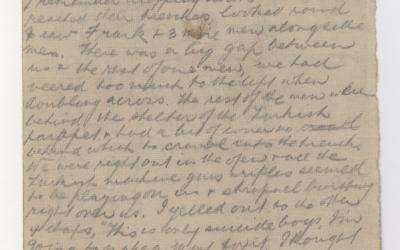 I remember
reached their trenches looked round
& saw Frank & 3 more men alongside
men. There was a big gap between
us & the rest of our men, we had
veered too much to the left when
doubling across. The rest of the men were
behind the shelter of the Turkish
parapet & had a bit of cover
behind which to crawl into the trench
We were right out in the open & all the
Turkish machine guns & rifles seemed
to be playing on us & shrapnel bursting
right over us. I yelled out to the other
4 chaps, "This is only suicide boys. I'm
going to make a jump for it" I thought